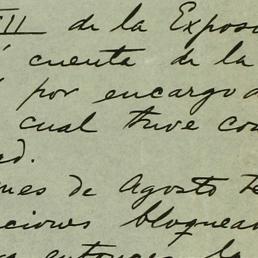 III de la Expos
cuenta de la
por encargo d
cual tuve co
d.
mes de Agosto te
ciones bloquea
entonces la